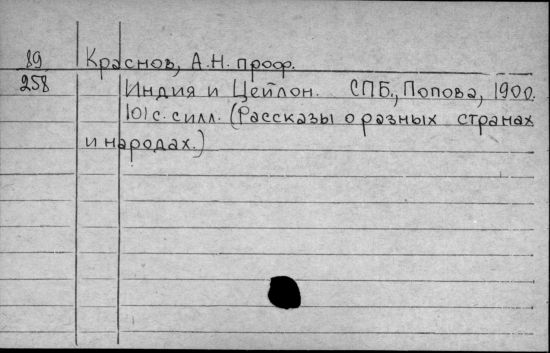 89 Краснов, А.Н. проф.
258 Индия и Цейлон. СПБ., Попова, 1900.
101 с. с илл. (Рассказы о разных странах
и народах.)